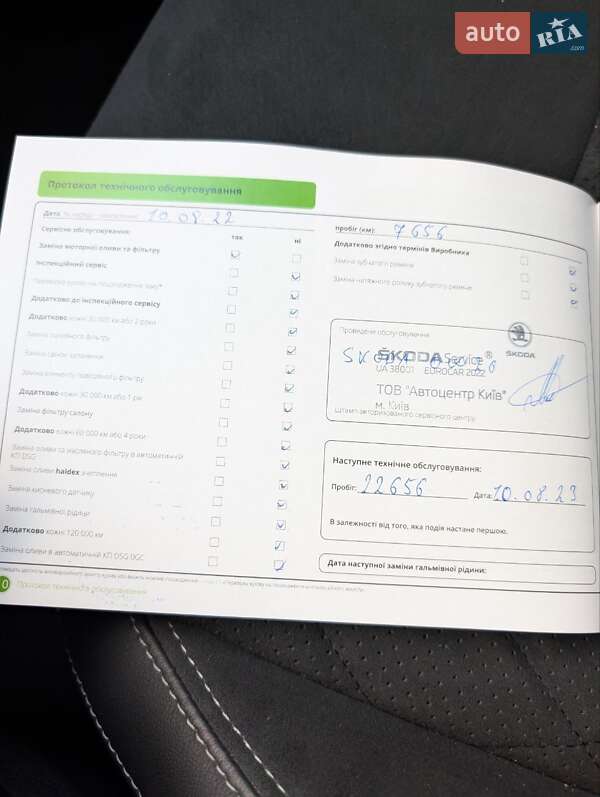 auto RIA .com
Протокол технічного обслуговування
Дата 10.08.22
Сервісне обслуговування: так ні
Заміна моторної оливи та фільтру
Інспекційний сервіс
Додатково до інспекційного сервісу
Додатково кожні 30 000 км або 2 роки
Заміна паливного фільтру
Заміна свічок запалення
Заміна елементу повітряного фільтру
Додатково кожні 30 000 км або 1 рік
Заміна фільтру салону
Додатково кожні 60 000 км або 4 роки
Заміна оливи та масляного фільтру в автоматичній
КП DSG
Заміна оливи haldex зчеплення
Заміна кисневого датчику
Заміна гальмівної рідини
Додатково кожні 120 000 км
Заміна оливи в автоматичній КП DSG DQC
0 Протокол технічного обслуговування
пробіг (км): 7656
Додатково згідно термінів Виробника
Заміна зубчатого ременю
Заміна натяжного ролику зубчатого ременю
Проведене обслуговування
SKODA
ŠKODA Service®
ŠKODA
UA 38001 EUROCAR 2022
ТОВ "Автоцентр Київ"
м. Київ
Штамп авторизованого сервісного центру
Наступне технічне обслуговування:
Пробіг: 22656 Дата: 10.08.23
В залежності від того, яка подія настане першою.
Дата наступної заміни гальмівної рідини: